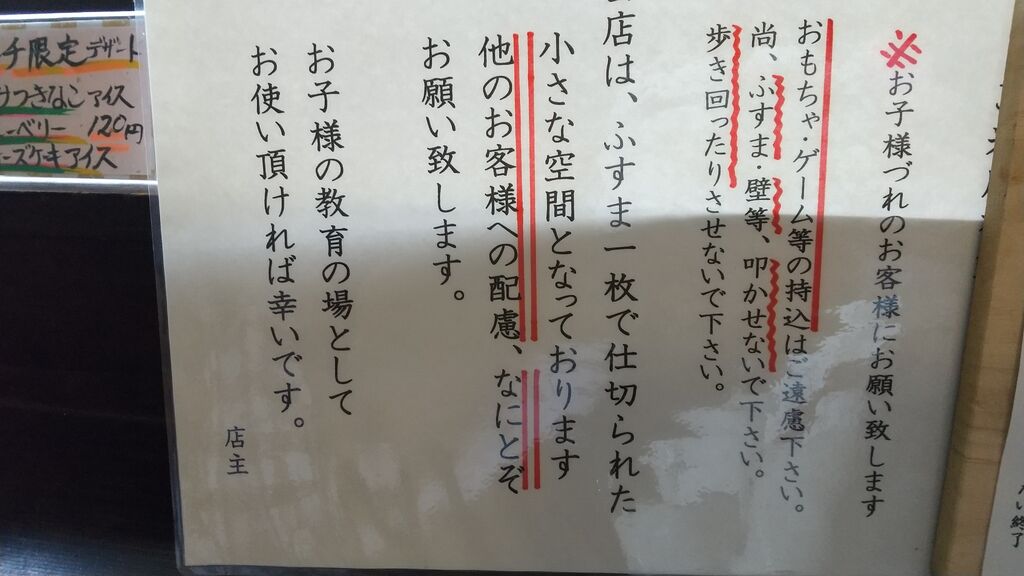 ※お子様づれのお客様にお願い致します
おもちゃ・ゲーム等の持込はご遠慮下さい。
尚、ふすま・壁等、叩かせないで下さい。
歩き回ったりさせないで下さい。
店は、ふすま一枚で仕切られた
小さな空間となっております
他のお客様への配慮、なにとぞ
お願い致します。
お子様の教育の場として
お使い頂ければ幸いです。
店主
チ限定デザート
きなこアイス
ベリー 120円
ーズケーキアイス
終了